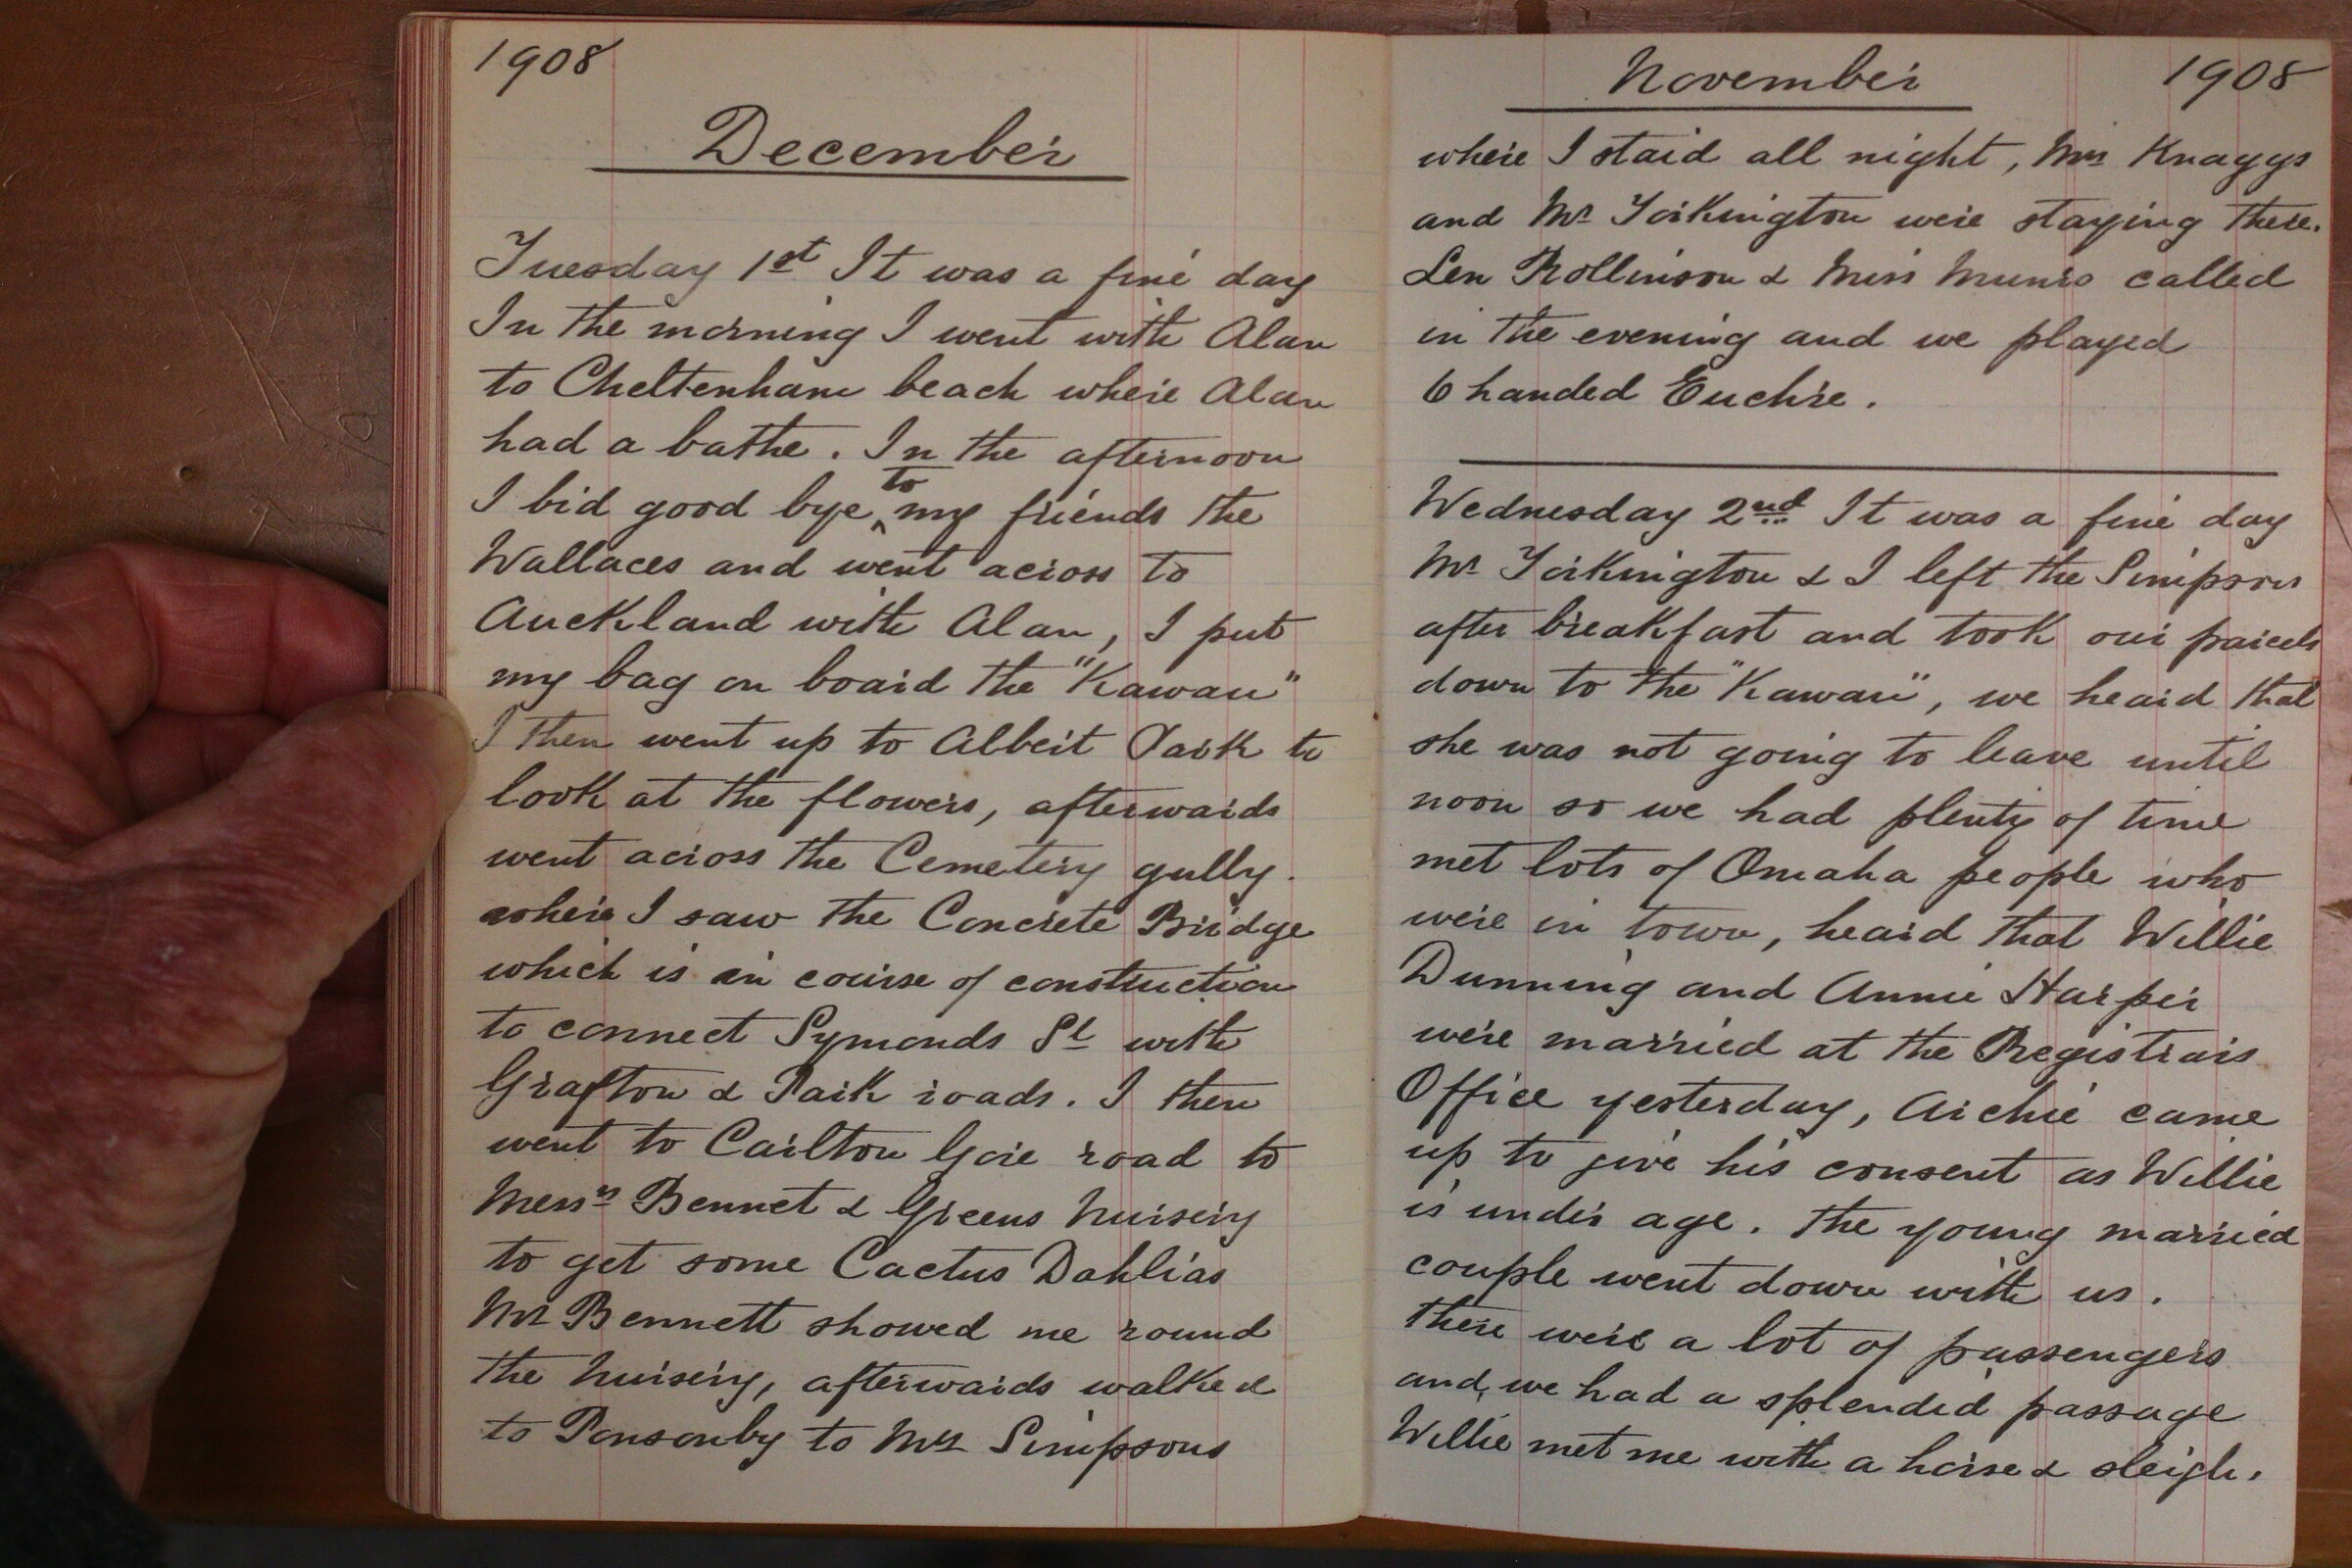 1908
December
Tuesday 1st It was a fine day
In the morning I went with Alan
to Cheltenham beach where Alan
had a bathe. In the afternoon
I bid good bye to my friends the
Wallaces and went across to
Auckland with Alan, I put
my bag on board the "Kawau"
I then went up to Albert Park to
look at the flowers, afterwards
went across the Cemetery gully.
where I saw the Concrete Bridge
which is in course of construction
to connect Symonds St with
Grafton & Park roads. I then
went to Carlton Gore road to
Messrs Bennet & Greens Nursery
to get some Cactus Dahlias
Mr Bennett showed me round
the Nursery, afterwards walked
to Ponsonby to Mrs Simpsons
November 1908
where I staid all night, Mrs Knaggs
and Mr Torkington were staying there.
Len Rollinson & Miss Munro called
in the evening and we played
6 handed Euchre.
Wednesday 2nd It was a fine day
Mr Torkington & I left the Simpsons
after breakfast and took our parcels
down to the "Kawau", we heard that
she was not going to leave until
noon so we had plenty of time
met lots of Omaha people who
were in town, heard that Willie
Dunning and Annie Harper
were married at the Registrars
Office yesterday, Archie came
up to give his consent as Willie
is under age. The young married
couple went down with us.
There were a lot of passengers
and we had a splendid passage
Willie met me with a horse & sleigh.